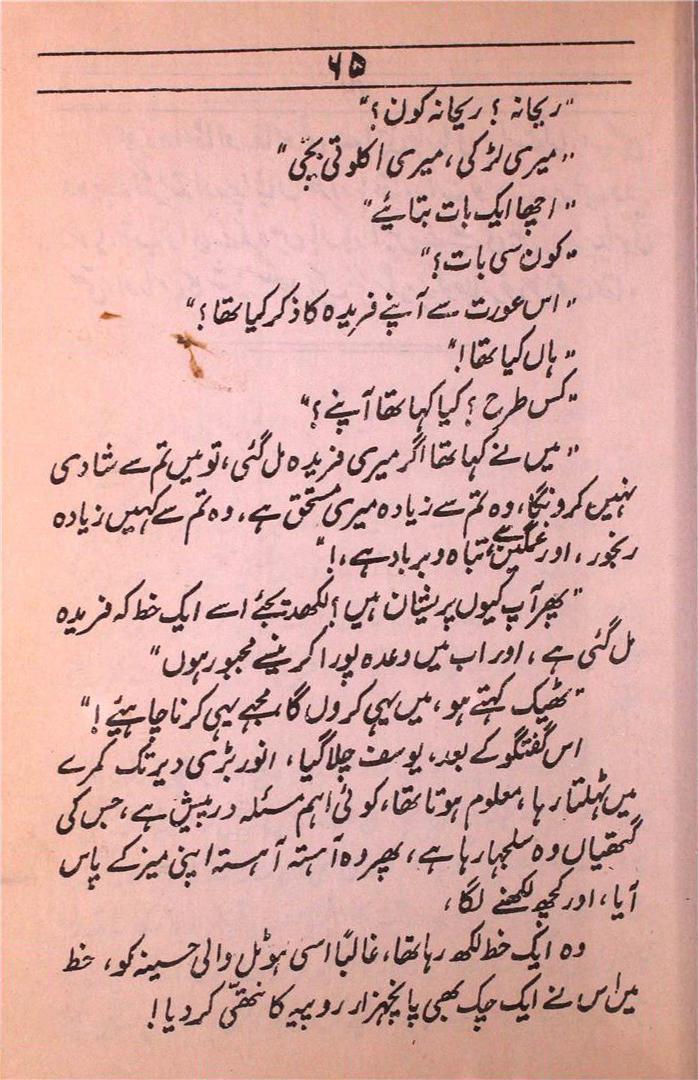 ۶۵
"ریحانہ ؟ ریحانہ کون ؟"
"میری لڑکی، میری اکلوتی بچّی"
"اچھا ایک بات بتائیے"
"کون سی بات ؟"
"اس عورت سے آپنے فریدہ کا ذکر کیا تھا ؟"
"ہاں کیا تھا !"
"کس طرح ؟ کیا کہا تھا آپنے ؟"
"میں نے کہا تھا اگر میری فریدہ مل گئی، تو میں تم سے شادی
نہیں کرونگا، وہ تم سے زیادہ میری مستحق ہے، وہ تم سے کہیں زیادہ
رنجور، اور غمگین ہے تباہ و برباد ہے، !"
"پھر آپ کیوں پریشان ہیں ؟ لکھدیجئے اسے ایک خط کہ فریدہ
مل گئی ہے، اور اب میں وعدہ پورا کرنیسے مجبور ہوں"
"ٹھیک کہتے ہو، میں یہی کروں گا، مجہے یہی کرنا چاہیئے !"
اس گفتگو کے بعد، یوسف چلا گیا، انور بڑی دیر تک کمرے
میں ٹہلتا رہا، معلوم ہوتا تھا، کوئی اہم مسئلہ درپیش ہے، جس کی
گتھیاں وہ سلجہا رہا ہے، پھر وہ آہستہ آہستہ اپنی میز کے پاس
آیا، اور کچھ لکھنے لگا،
وہ ایک خط لکھ رہا تھا، غالباً اسی ہوٹل والی حسینہ کو، خط
میں اس نے ایک چک بھی پانچہزار روپیہ کا نتھّی کر دیا !